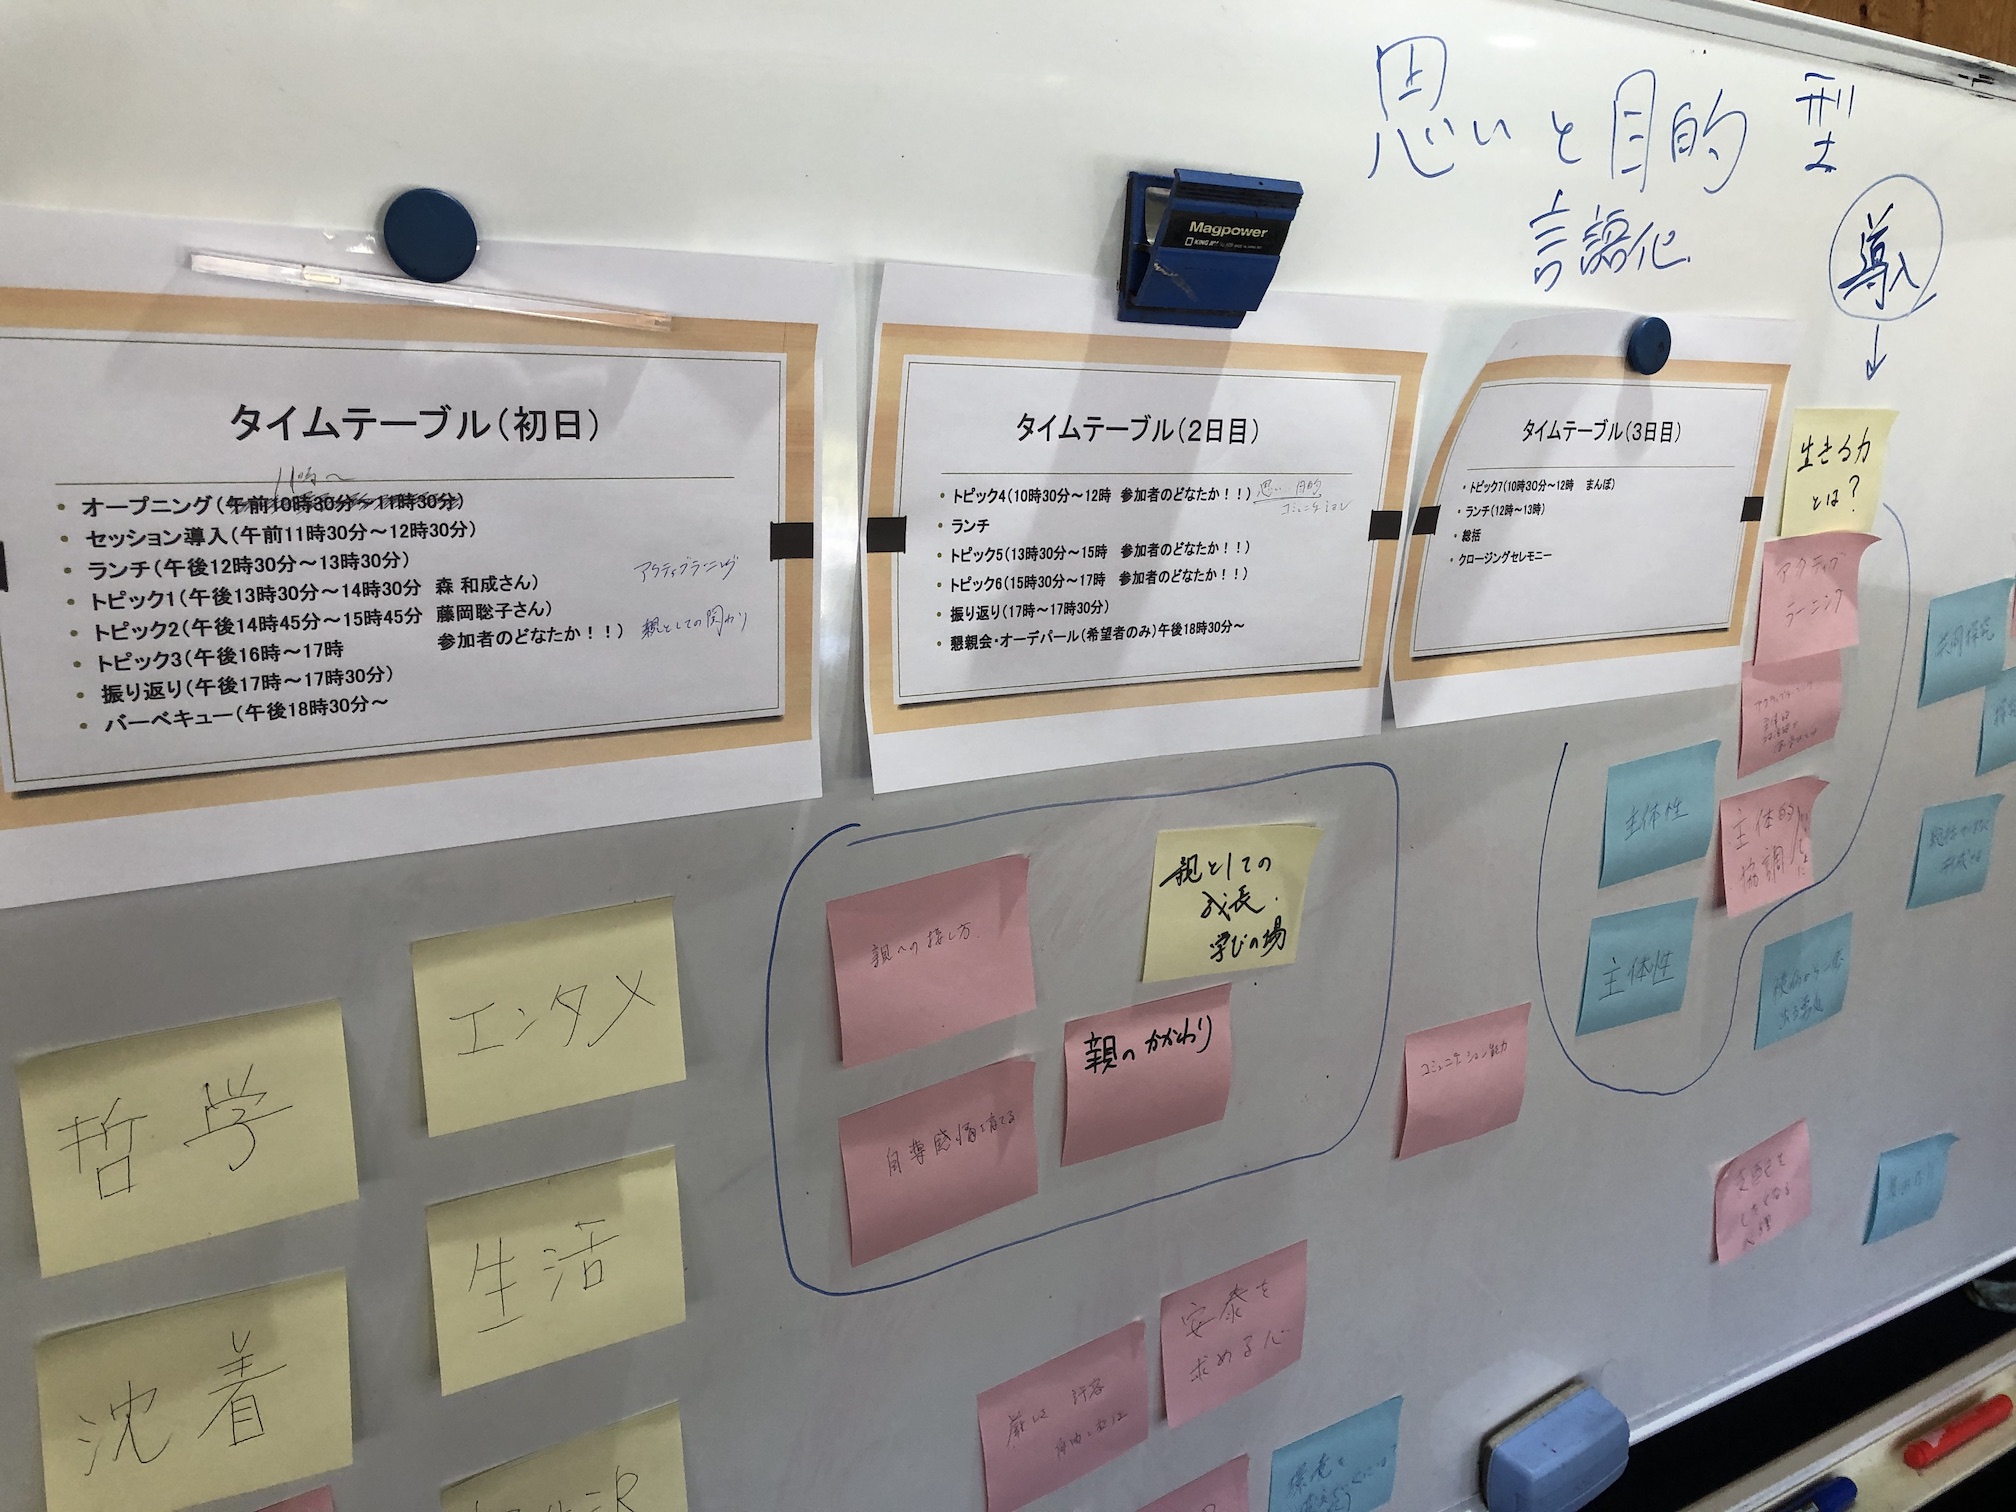 思いと目的 型
言語化
導入
Magpower
タイムテーブル(初日)
11時〜
・オープニング(午前10時30分〜11時30分)
・セッション導入(午前11時30分〜12時30分)
・ランチ(午後12時30分〜13時30分)
・トピック1(午後13時30分〜14時30分 森 和成さん)
アクティブラーニング
・トピック2(午後14時45分〜15時45分 藤岡聡子さん)
・トピック3(午後16時〜17時 参加者のどなたか！！)
親としての関わり
・振り返り(午後17時〜17時30分)
・バーベキュー(午後18時30分〜
タイムテーブル(2日目)
・トピック4(10時30分〜12時 参加者のどなたか！！)
思い 目的
・ランチ
・トピック5(13時30分〜15時 参加者のどなたか！！)
・トピック6(15時30分〜17時 参加者のどなたか！！)
・振り返り(17時〜17時30分)
・懇親会・オーデパール(希望者のみ)午後18時30分〜
タイムテーブル(3日目)
・トピック7(10時30分〜12時 まんぼ)
・ランチ(12時〜13時)
・総括
・クロージングセレモニー
生きる力
とは？
アクティブ
ラーニング
共同探究
主体性
主体的
協調
主体性
親としての
成長.
学びの場
親への接し方
親のかかわり
自尊感情を育てる
コミュニケーション能力
エンタメ
哲学
生活
沈着
安泰を
求める心